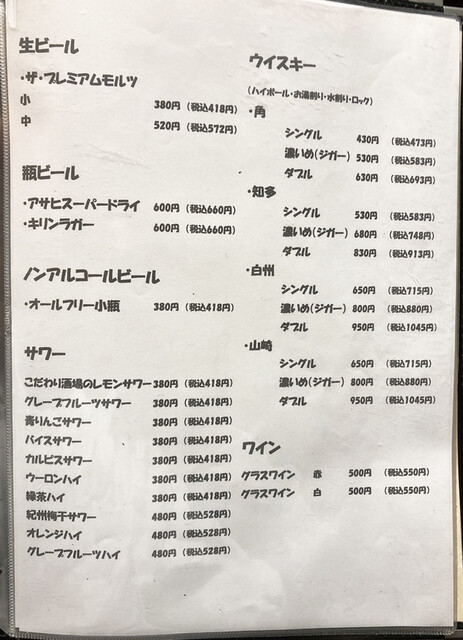 生ビール
・ザ・プレミアムモルツ
小 380円 (税込418円)
中 520円 (税込572円)
瓶ビール
・アサヒスーパードライ 600円 (税込660円)
・キリンラガー 600円 (税込660円)
ノンアルコールビール
・オールフリー小瓶 380円 (税込418円)
サワー
こだわり酒場のレモンサワー 380円 (税込418円)
グレープフルーツサワー 380円 (税込418円)
青りんごサワー 380円 (税込418円)
バイスサワー 380円 (税込418円)
カルピスサワー 380円 (税込418円)
ウーロンハイ 380円 (税込418円)
緑茶ハイ 380円 (税込418円)
紀州梅干サワー 480円 (税込528円)
オレンジハイ 480円 (税込528円)
グレープフルーツハイ 480円 (税込528円)
ウイスキー
(ハイボール・お湯割り・水割り・ロック)
・角
シングル 430円 (税込473円)
濃いめ(ジガー) 530円 (税込583円)
ダブル 630円 (税込693円)
・知多
シングル 530円 (税込583円)
濃いめ(ジガー) 680円 (税込748円)
ダブル 830円 (税込913円)
・白州
シングル 650円 (税込715円)
濃いめ(ジガー) 800円 (税込880円)
ダブル 950円 (税込1045円)
・山崎
シングル 650円 (税込715円)
濃いめ(ジガー) 800円 (税込880円)
ダブル 950円 (税込1045円)
ワイン
グラスワイン 赤 500円 (税込550円)
グラスワイン 白 500円 (税込550円)